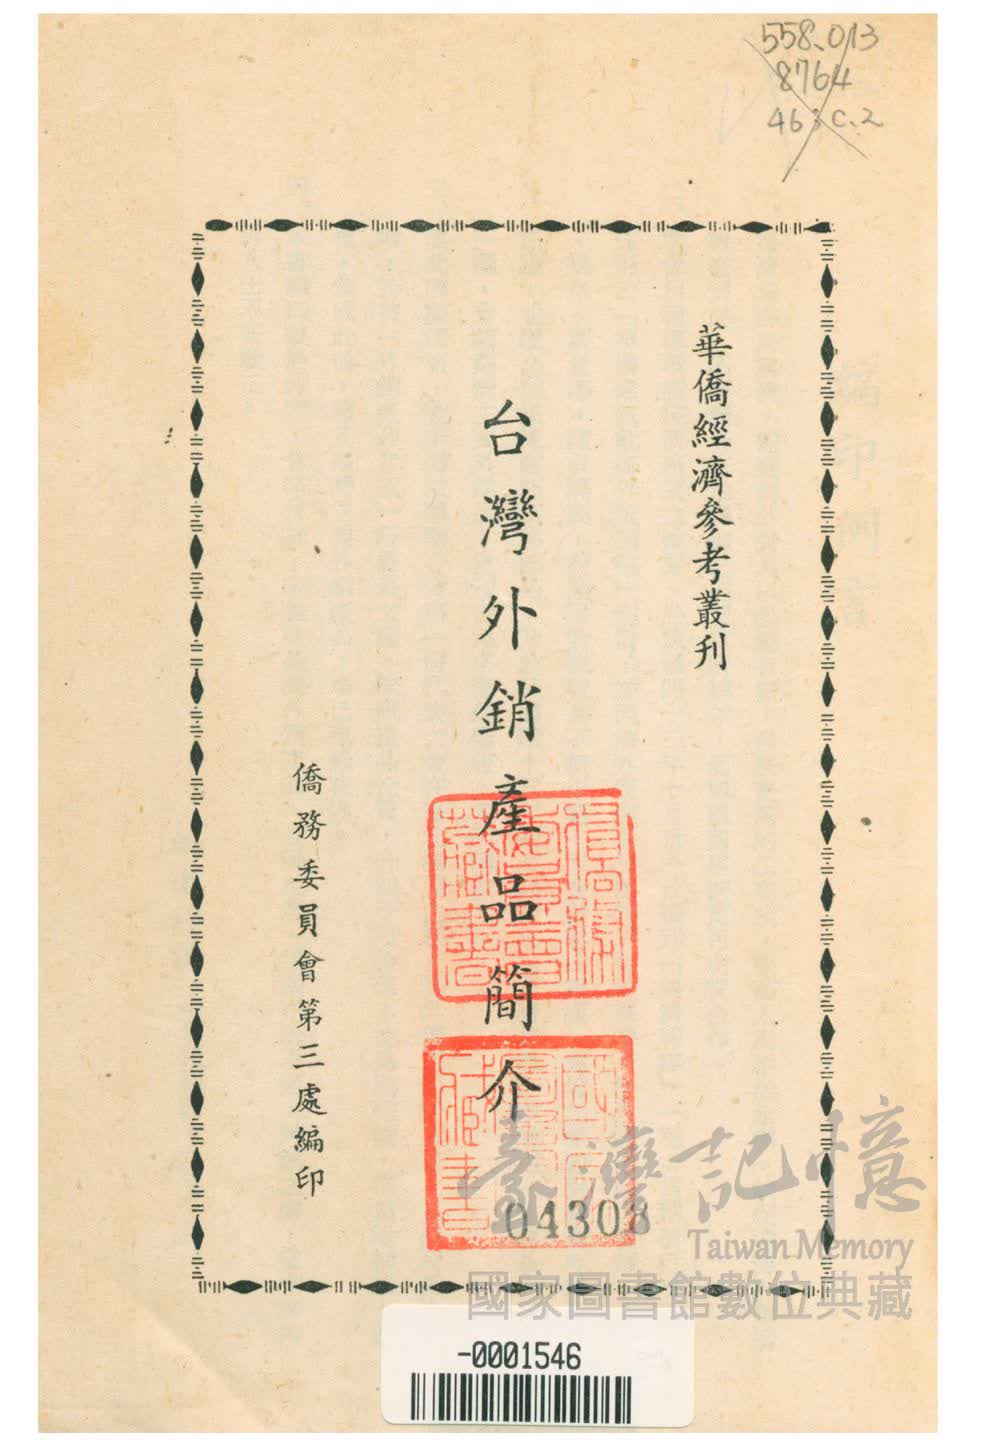 558.013
8764
46 : C.2
華僑經濟參考叢刊
台灣外銷產品簡介
僑務委員會第三處編印
僑務
委員會
藏書
國立
圖書
藏書
04303
臺灣記憶
Taiwan Memory
國家圖書館數位典藏
-0001546